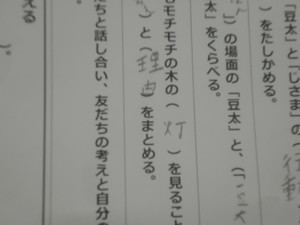 「豆太」と「じさま」の（行動
）をたしかめる。
）の場面の「豆太」と、（「
太」をくらべる。
モチモチの木の（灯）を見ること
）と（理由）をまとめる。
ちと話し合い、友だちの考えと自分の
える
）。